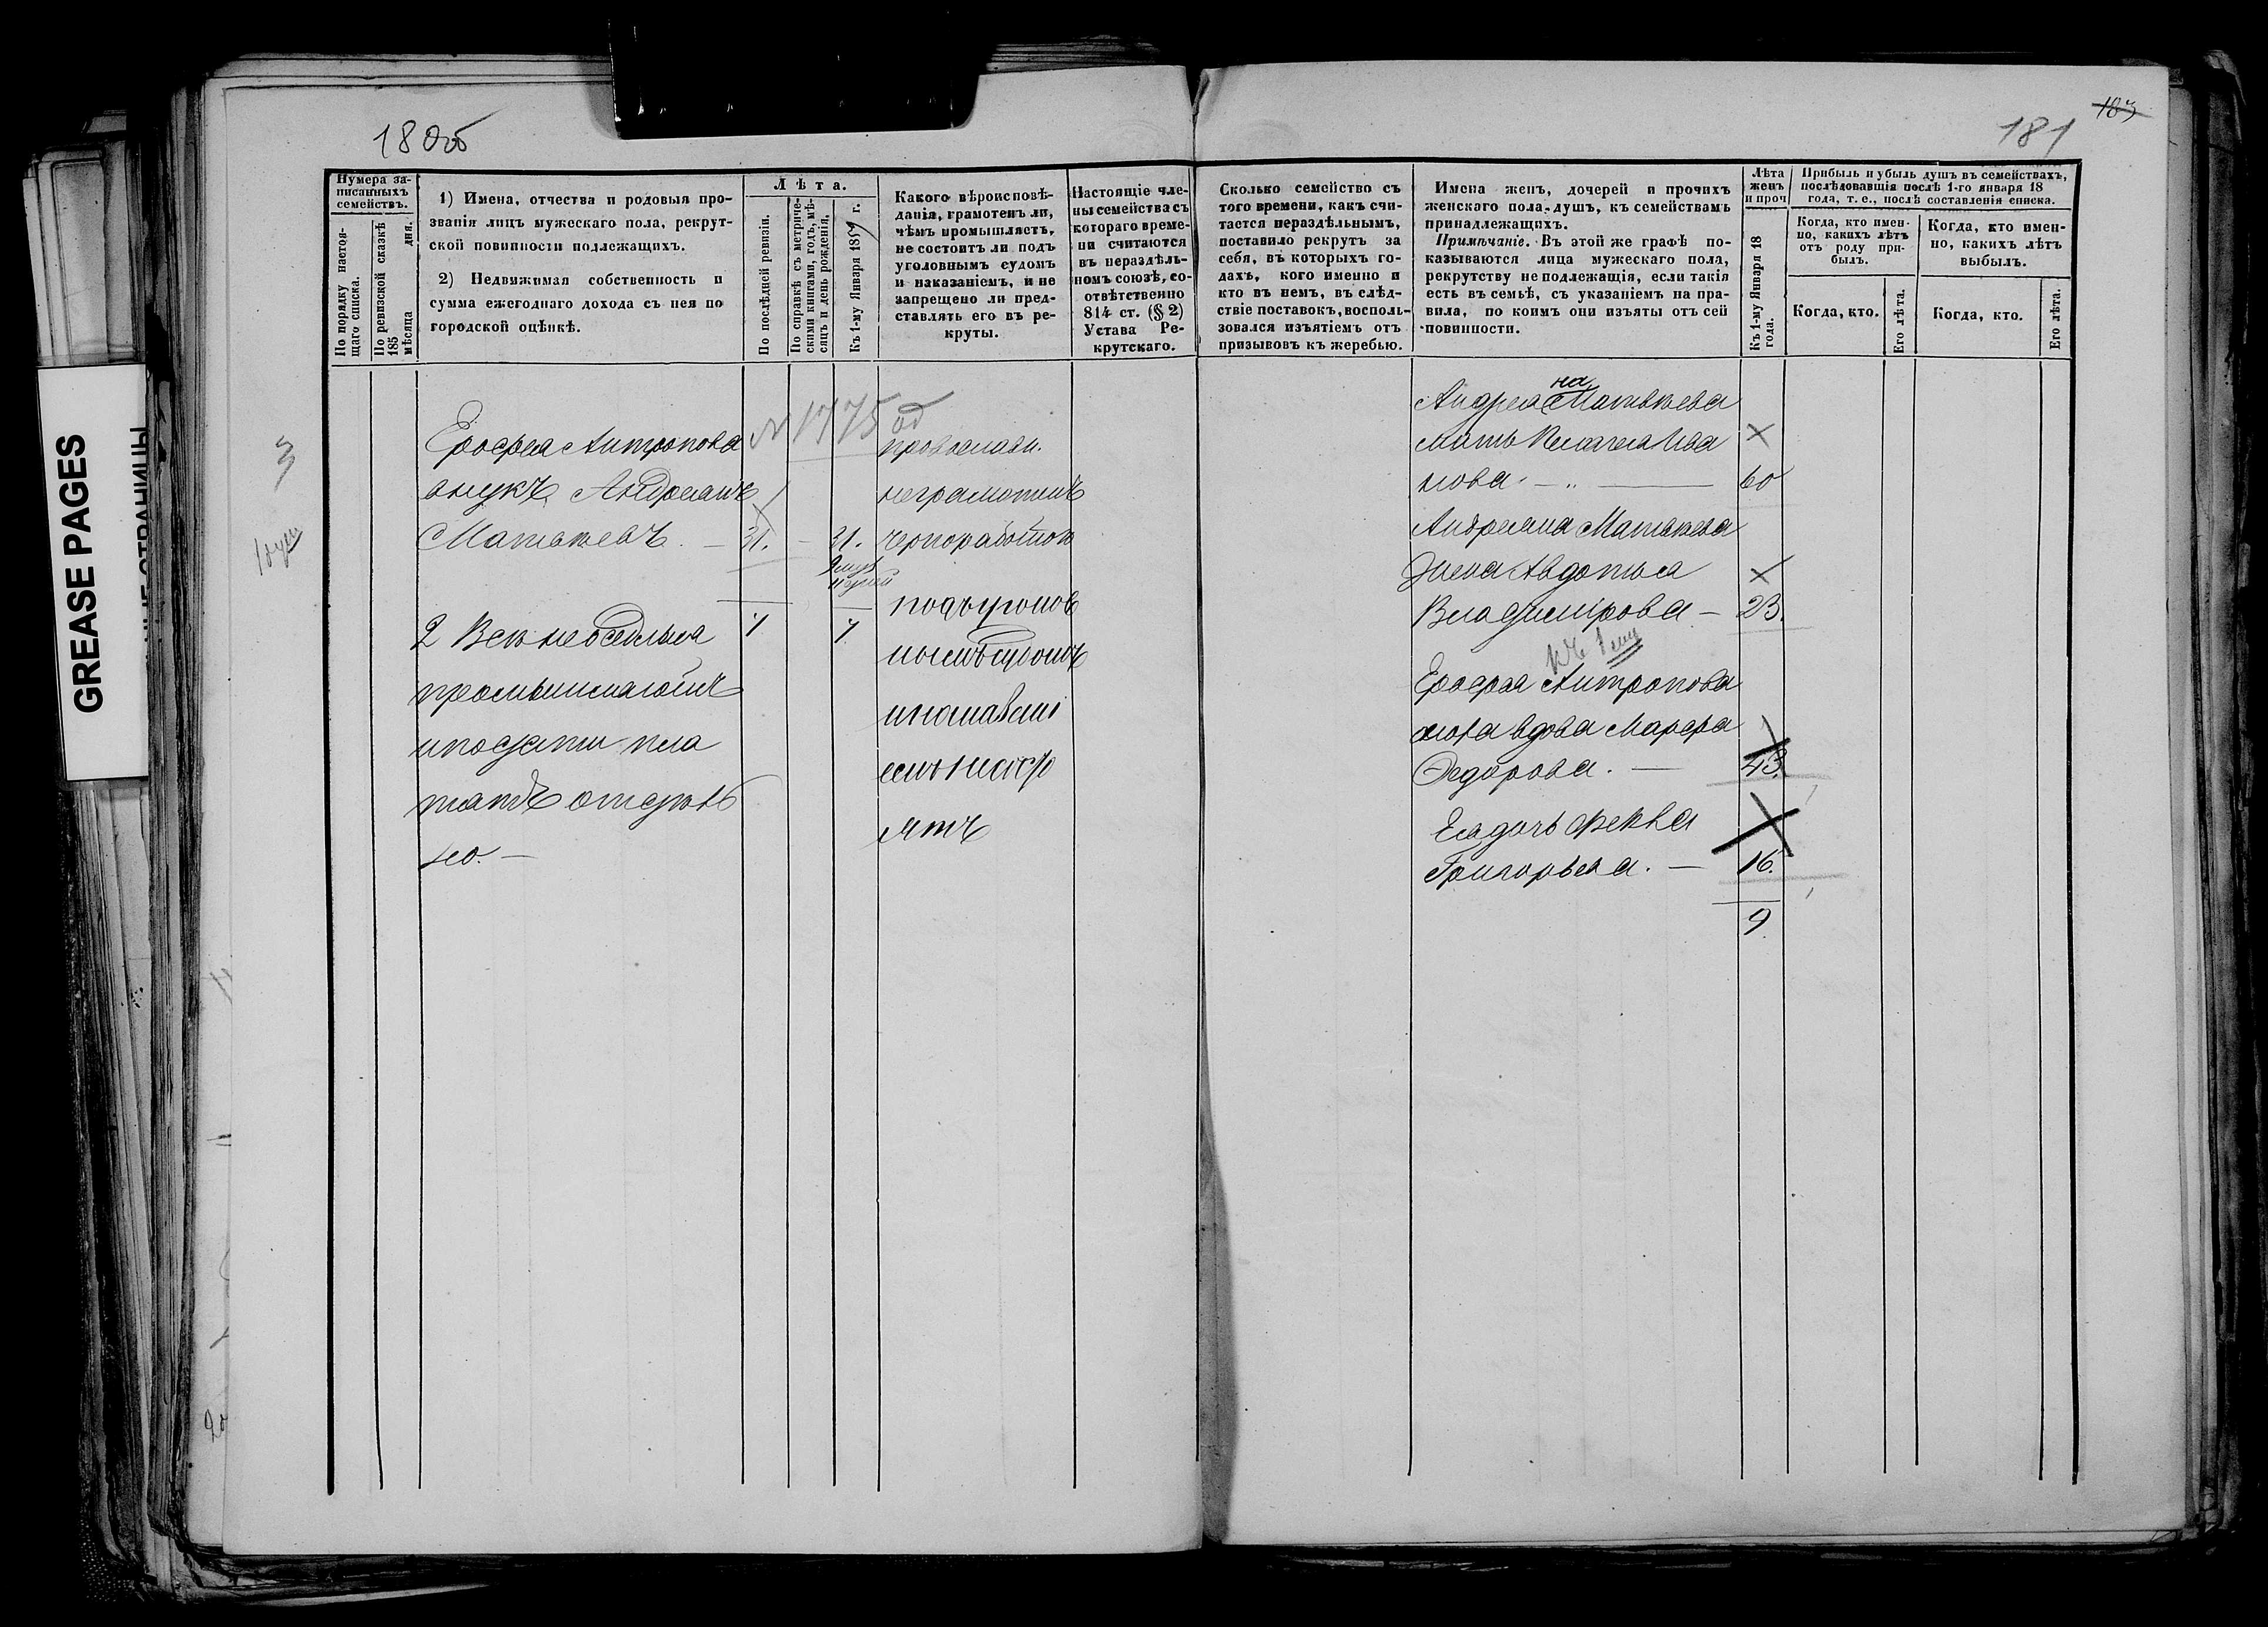 180об
181
183
GREASE PAGES
Нумера записанныхъ семействъ.
По порядку настоящаго списка.
По ревизской сказкѣ 185 мѣсяца дня.
1) Имена, отчества и родовыя прозванія лицъ мужескаго пола, рекрутской повинности подлежащихъ.
2) Недвижимая собственность и сумма ежегоднаго дохода съ нея по городской оцѣнкѣ.
Лѣта.
По послѣдней ревизіи.
По справкѣ съ метрическими книгами, годъ, мѣсяцъ и день рожденія.
Къ 1-му Января 18 г.
Какого вѣроисповѣданія, грамотенъ ли, чѣмъ промышляетъ, не состоитъ ли подъ уголовнымъ судомъ и наказаніемъ, и не запрещено ли представлять его въ рекруты.
Настоящіе члены семейства съ котораго времени считаются въ нераздѣльномъ союзѣ, соотвѣтственно 814 ст. (§ 2) Устава Рекрутскаго.
Сколько семейство съ того времени, какъ считается нераздѣльнымъ, поставило рекрутъ за себя, въ которыхъ годахъ, кого именно и кто въ немъ, въ слѣдствіе поставокъ, воспользовался изъятіемъ отъ призывовъ къ жеребью.
Имена женъ, дочерей и прочихъ женскаго пола душъ, къ семействамъ принадлежащихъ.
Примѣчаніе. Въ этой же графѣ показываются лица мужескаго пола, рекрутству не подлежащія, если такія есть въ семьѣ, съ указаніемъ на правила, по коимъ они изъяты отъ сей повинности.
Лѣта женъ и проч
Къ 1-му Января 18 года.
Прибыль и убыль душъ въ семействахъ, послѣдовавшія послѣ 1-го января 18 года, т. е., послѣ составленія списка.
Когда, кто именно, какихъ лѣтъ отъ роду прибылъ.
Когда, кто именно, какихъ лѣтъ выбылъ.
Когда, кто.
Его лѣта.
Когда, кто.
Его лѣта.
3
N 1775
Ерофея Антропова
внукъ Андреянъ
Матвѣевъ. — 31. — 31.
2 Вск неоседлыя
промышляютъ
иподати пла
тятъ отдѣль
но. —
1
1
православн.
неграмотенъ
черноработою
подъугонов
нымъ судомъ
Андреяна Матвѣева
мать Пелагея Ива
нова. — 60
Андреяна Матвѣева
жена Авдотья
Владимірова — 23.
Ерофея Антропова
сноха вдова Марфа
Федорова. — 43.
Ея дочь Фекла
Григорьева. — 16.
9